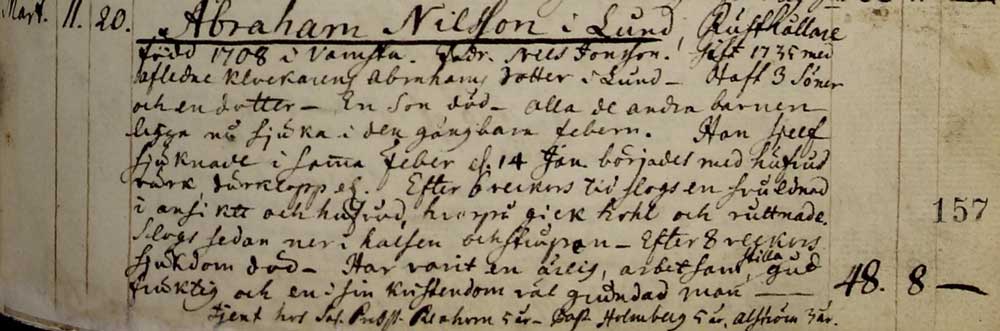 Mart. 11. 20. Abraham Nilsson i Lund, Rusthållare
född 1708 i Vamsta. Fadr. Nils Jonsson. Gift 1735 med
afledne klockarens Abrahams dotter i Lund – Haft 3 Söner
och en dotter – En Son död – alla de andra barnen
liggia nu sjuka i den gångbara febern. Han sielf
sjuknade i samma feber d. 14 Jan börjades med hufvud
värk, durklopp etc. Efter 6 veckors tid slogs en svuldnad
i ansikte och hufvud, hvarpå gick hohl och ruttnade.
Slogs sedan ner i halsen och strupan – Efter 8 veckors
sjukdom död – Har varit en ärlig, arbetsam, stilla, gud
fruktig och en i sin kristendom väl grundad man — 48. 8 —
tjent hos Sal. Probst 5 år – Past. Holmberg 5 år, Alström 3 år.
157